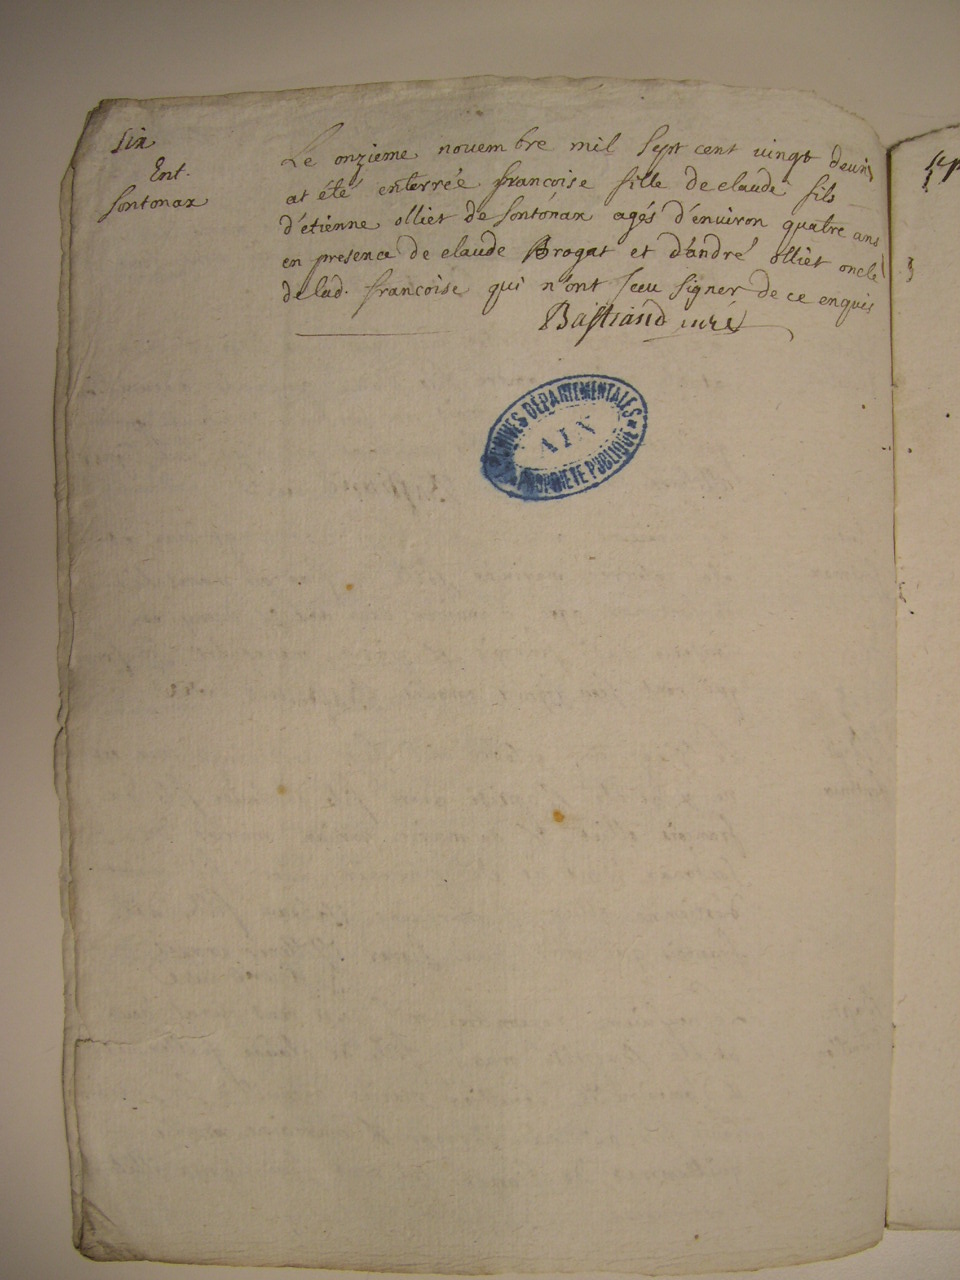 six
Ent.
sontonax
Le onzieme novembre mil sept cent vingt deux
at été enterrée francoise fille de claude fils
d'étienne olliet de sontonax agés d'environ quatre ans
en presence de claude Brogat et d'andré olliet oncle
de lad. francoise qui n'ont sceu signer de ce enquis
Bastiand curé
ARCHIVES DÉPARTEMENTALES
AIN
PROPRIÉTÉ PUBLIQUE